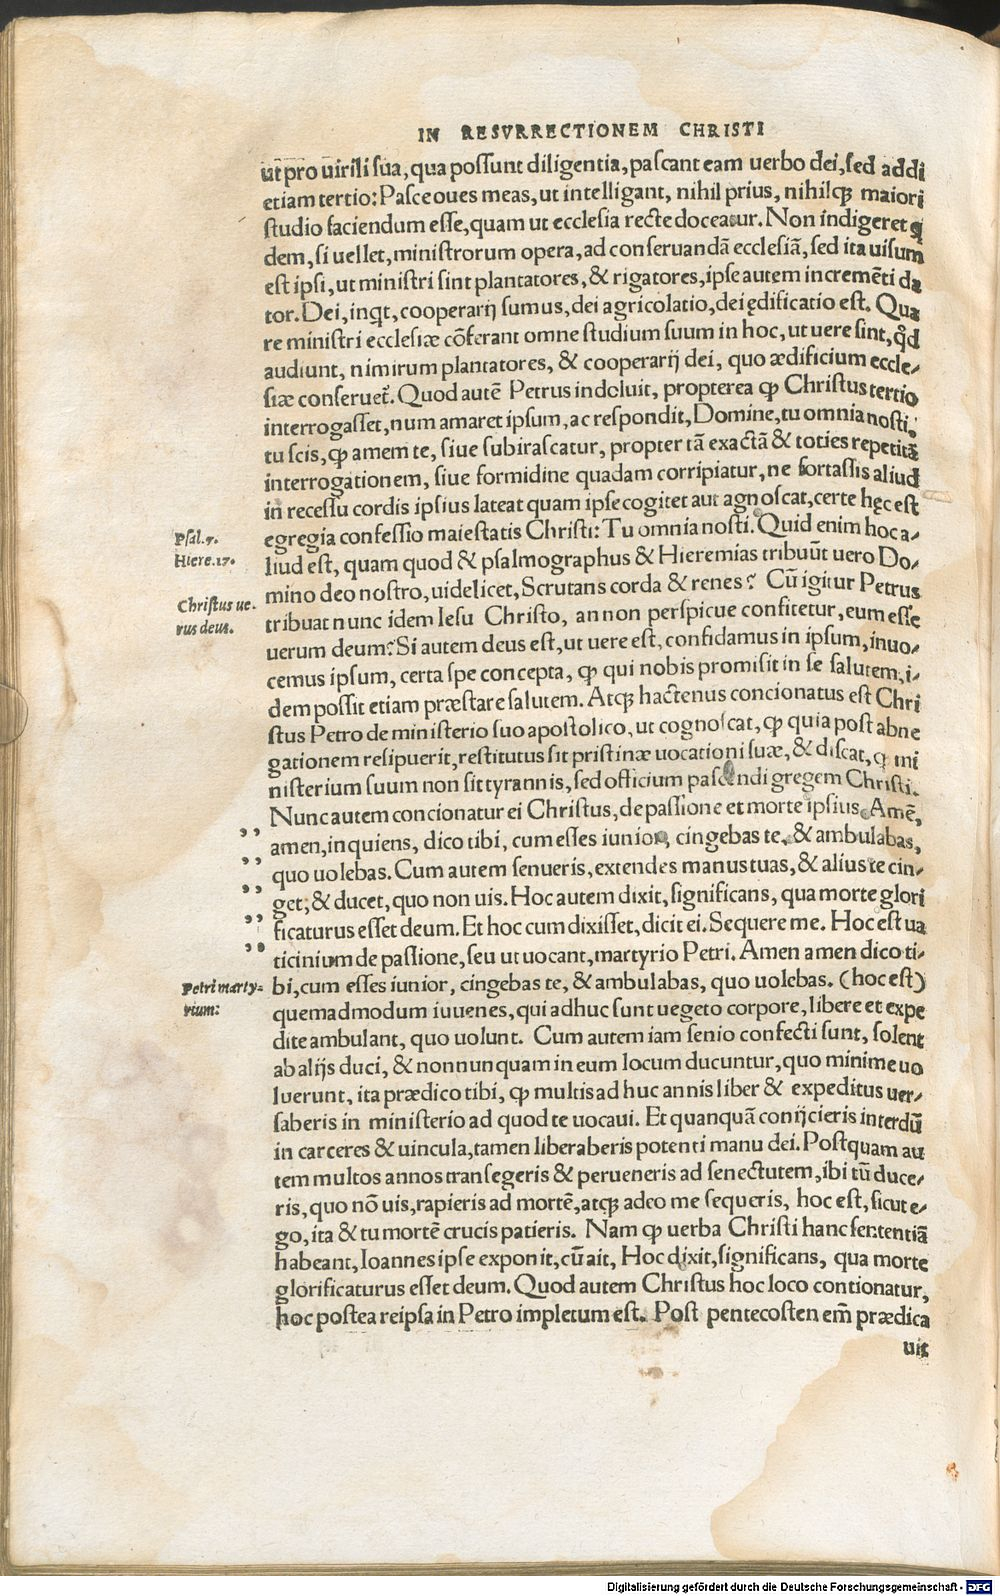 IN RESVRRECTIONEM CHRISTI
ut pro uirili sua, qua possunt diligentia, pascant eam uerbo dei, sed addi
etiam tertio: Pasce oues meas, ut intelligant, nihil prius, nihilqꝫ maiori
studio faciendum esse, quam ut ecclesia recte doceatur. Non indigeret qͥ
dem, si uellet, ministrorum opera, ad conseruandā ecclesiā, sed ita uisum
est ipsi, ut ministri sint plantatores, & rigatores, ipse autem incremēti da
tor. Dei, inqͥt, cooperarij sumus, dei agricolatio, dei ędificatio est. Qua
re ministri ecclesiæ cōferant omne studium suum in hoc, ut uere sint, qͥd
audiunt, nimirum plantatores, & cooperarij dei, quo ædificium eccle-
siæ conseruet᷑. Quod autē Petrus indoluit, propterea ꝙ Christus tertio
interrogasset, num amaret ipsum, ac respondit, Domine, tu omnia nosti,
tu scis, ꝙ amem te, siue subirascatur, propter tā exactā & toties repetitā
interrogationem, siue formidine quadam corripiatur, ne fortassis aliud
in recessu cordis ipsius lateat quam ipse cogitet aut agnoscat, certe hęc est
egregia confessio maiestatis Christi: Tu omnia nosti. Quid enim hoc a-
Psal. 7.
Hiere. 17.
liud est, quam quod & psalmographus & Hieremias tribuūt uero Do-
mino deo nostro, uidelicet, Scrutans corda & renes? Cū igitur Petrus
Christus ue-
rus deus.
tribuat nunc idem Iesu Christo, an non perspicue confitetur, eum esse
uerum deum? Si autem deus est, ut uere est, confidamus in ipsum, inuo-
cemus ipsum, certa spe concepta, ꝙ qui nobis promisit in se salutem, i-
dem possit etiam præstare salutem. Atqꝫ hactenus concionatus est Chri
stus Petro de ministerio suo apostolico, ut cognoscat, ꝙ quia post abne
gationem resipuerit, restitutus sit pristinæ uocationi suæ, & discat, ꝙ mi
nisterium suum non sit tyrannis, sed officium pascendi gregem Christi.
Nunc autem concionatur ei Christus, de passione et morte ipsius. Amē,
,, amen, inquiens, dico tibi, cum esses iunior, cingebas te, & ambulabas,
,, quo uolebas. Cum autem senueris, extendes manus tuas, & alius te cin-
,, get, & ducet, quo non uis. Hoc autem dixit, significans, qua morte glori
,, ficaturus esset deum. Et hoc cum dixisset, dicit ei. Sequere me. Hoc est ua
,, ticinium de passione, seu ut uocant, martyrio Petri. Amen amen dico ti-
Petri marty-
rium:
bi, cum esses iunior, cingebas te, & ambulabas, quo uolebas. (hoc est)
quemadmodum iuuenes, qui adhuc sunt uegeto corpore, libere et expe
dite ambulant, quo uolunt. Cum autem iam senio confecti sunt, solent
ab alijs duci, & nonnunquam in eum locum ducuntur, quo minime uo
luerunt, ita prædico tibi, ꝙ multis ad huc annis liber & expeditus uer-
saberis in ministerio ad quod te uocaui. Et quanquā conijcieris interdū
in carceres & uincula, tamen liberaberis potenti manu dei. Postquam au
tem multos annos transegeris & perueneris ad senectutem, ibi tū duce-
ris, quo nō uis, rapieris ad mortē, atqꝫ adeo me sequeris, hoc est, sicut e-
go, ita & tu mortē crucis patieris. Nam ꝙ uerba Christi hanc sententiā
habeant, Ioannes ipse exponit, cū ait, Hoc dixit, significans, qua morte
glorificaturus esset deum. Quod autem Christus hoc loco contionatur,
hoc postea reipsa in Petro impletum est. Post pentecosten em̄ prædica
uit
Digitalisierung gefördert durch die Deutsche Forschungsgemeinschaft - DFG